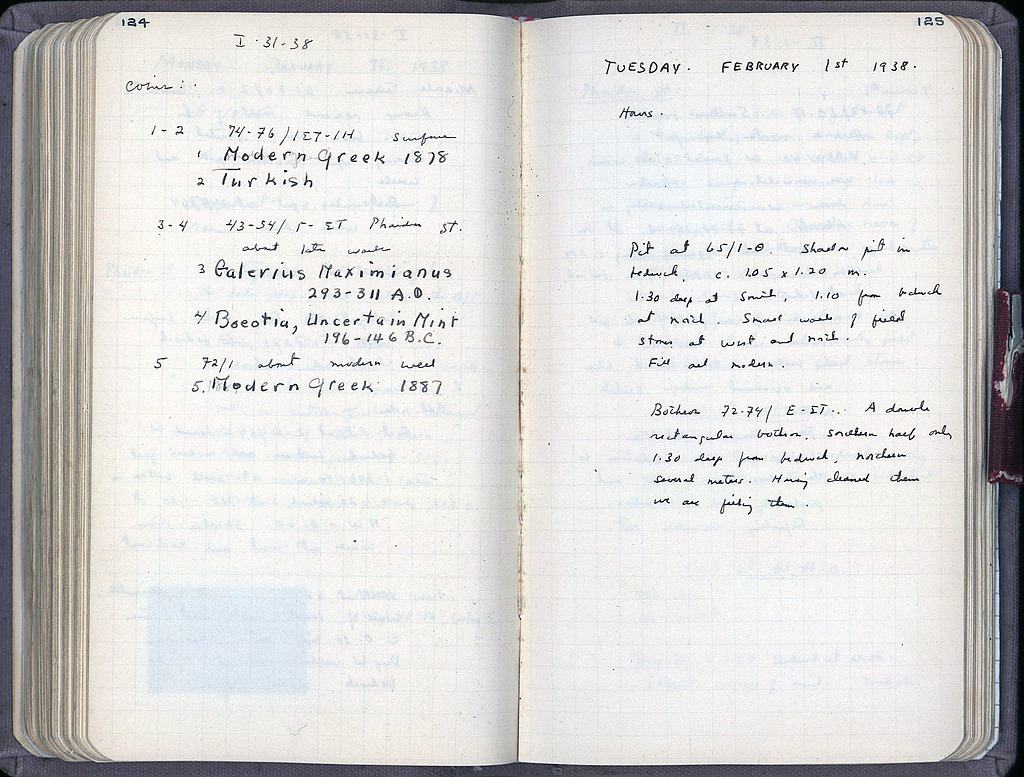 124
I-31-38
Coins:
1-2 74-76/IΣT-IH Surface
1 Modern Greek 1878
2 Turkish
3-4 43-54/Γ-ΣT Phaidon St.
about late walls
3 Galerius Maximianus
293-311 A.D.
4 Boeotia, Uncertain Mint
196-146 B.C.
5 72/1 about modern well
5. Modern Greek 1887
125
TUESDAY. FEBRUARY 1st 1938.
Hours.
Pit at 65/1-Θ. Shallow pit in
bedrock, c. 1.05 x 1.20 m.
1.30 deep at South, 1.10 from bedrock
at north. Small walls of field
stones at west and north.
Fill all modern.
Bothros 72-74/ E-ΣT.. A double
rectangular bothros, southern half only
1.30 deep from bedrock, northern
several meters. Having cleaned them
we are filling them.